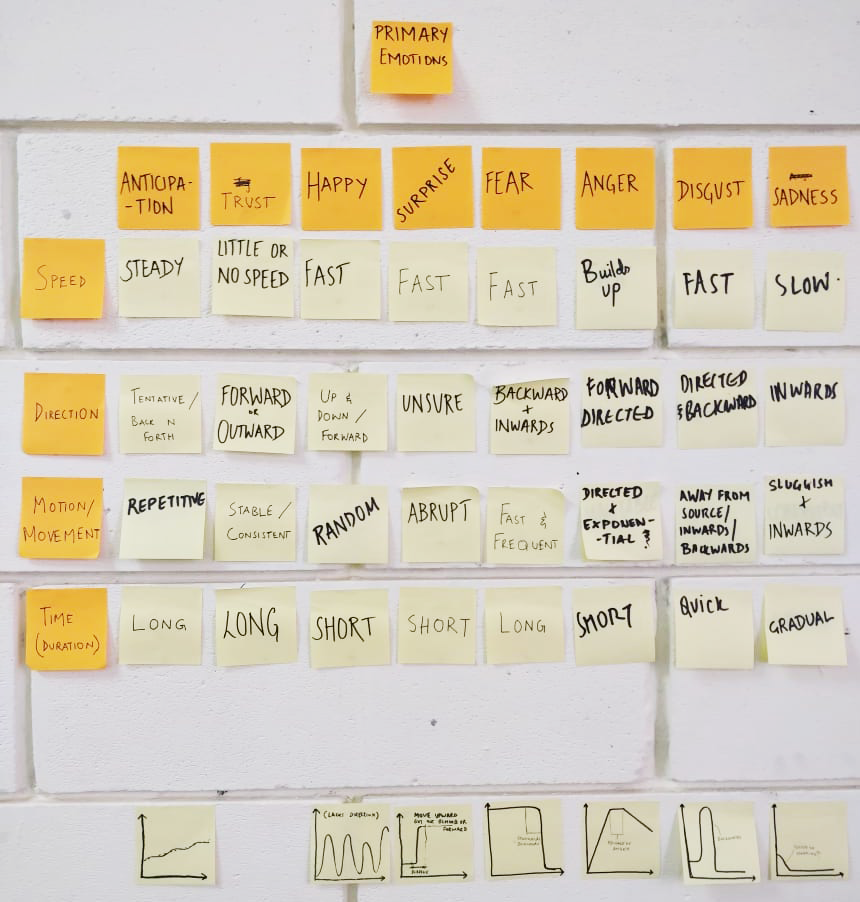 PRIMARY
EMOTIONS
ANTICIPA-
-TION
TRUST
HAPPY
SURPRISE
FEAR
ANGER
DISGUST
SADNESS
SPEED
STEADY
LITTLE OR
NO SPEED
FAST
FAST
FAST
Builds
up
FAST
SLOW.
DIRECTION
TENTATIVE /
BACK N
FORTH
FORWARD
OR
OUTWARD
UP &
DOWN /
FORWARD
UNSURE
BACKWARD
+
INWARDS
FORWARD
DIRECTED
DIRECTED
& BACKWARD
INWARDS
MOTION/
MOVEMENT
REPETITIVE
STABLE /
CONSISTENT
RANDOM
ABRUPT
FAST &
FREQUENT
DIRECTED
&
EXPONEN-
-TIAL ?
AWAY FROM
SOURCE/
INWARDS/
BACKWARDS
SLUGGISH
+
INWARDS
TIME
(DURATION)
LONG
LONG
SHORT
SHORT
LONG
SHORT
Quick
GRADUAL
(LACKS DIRECTION)
MOVE UPWARD
OR
FORWARD